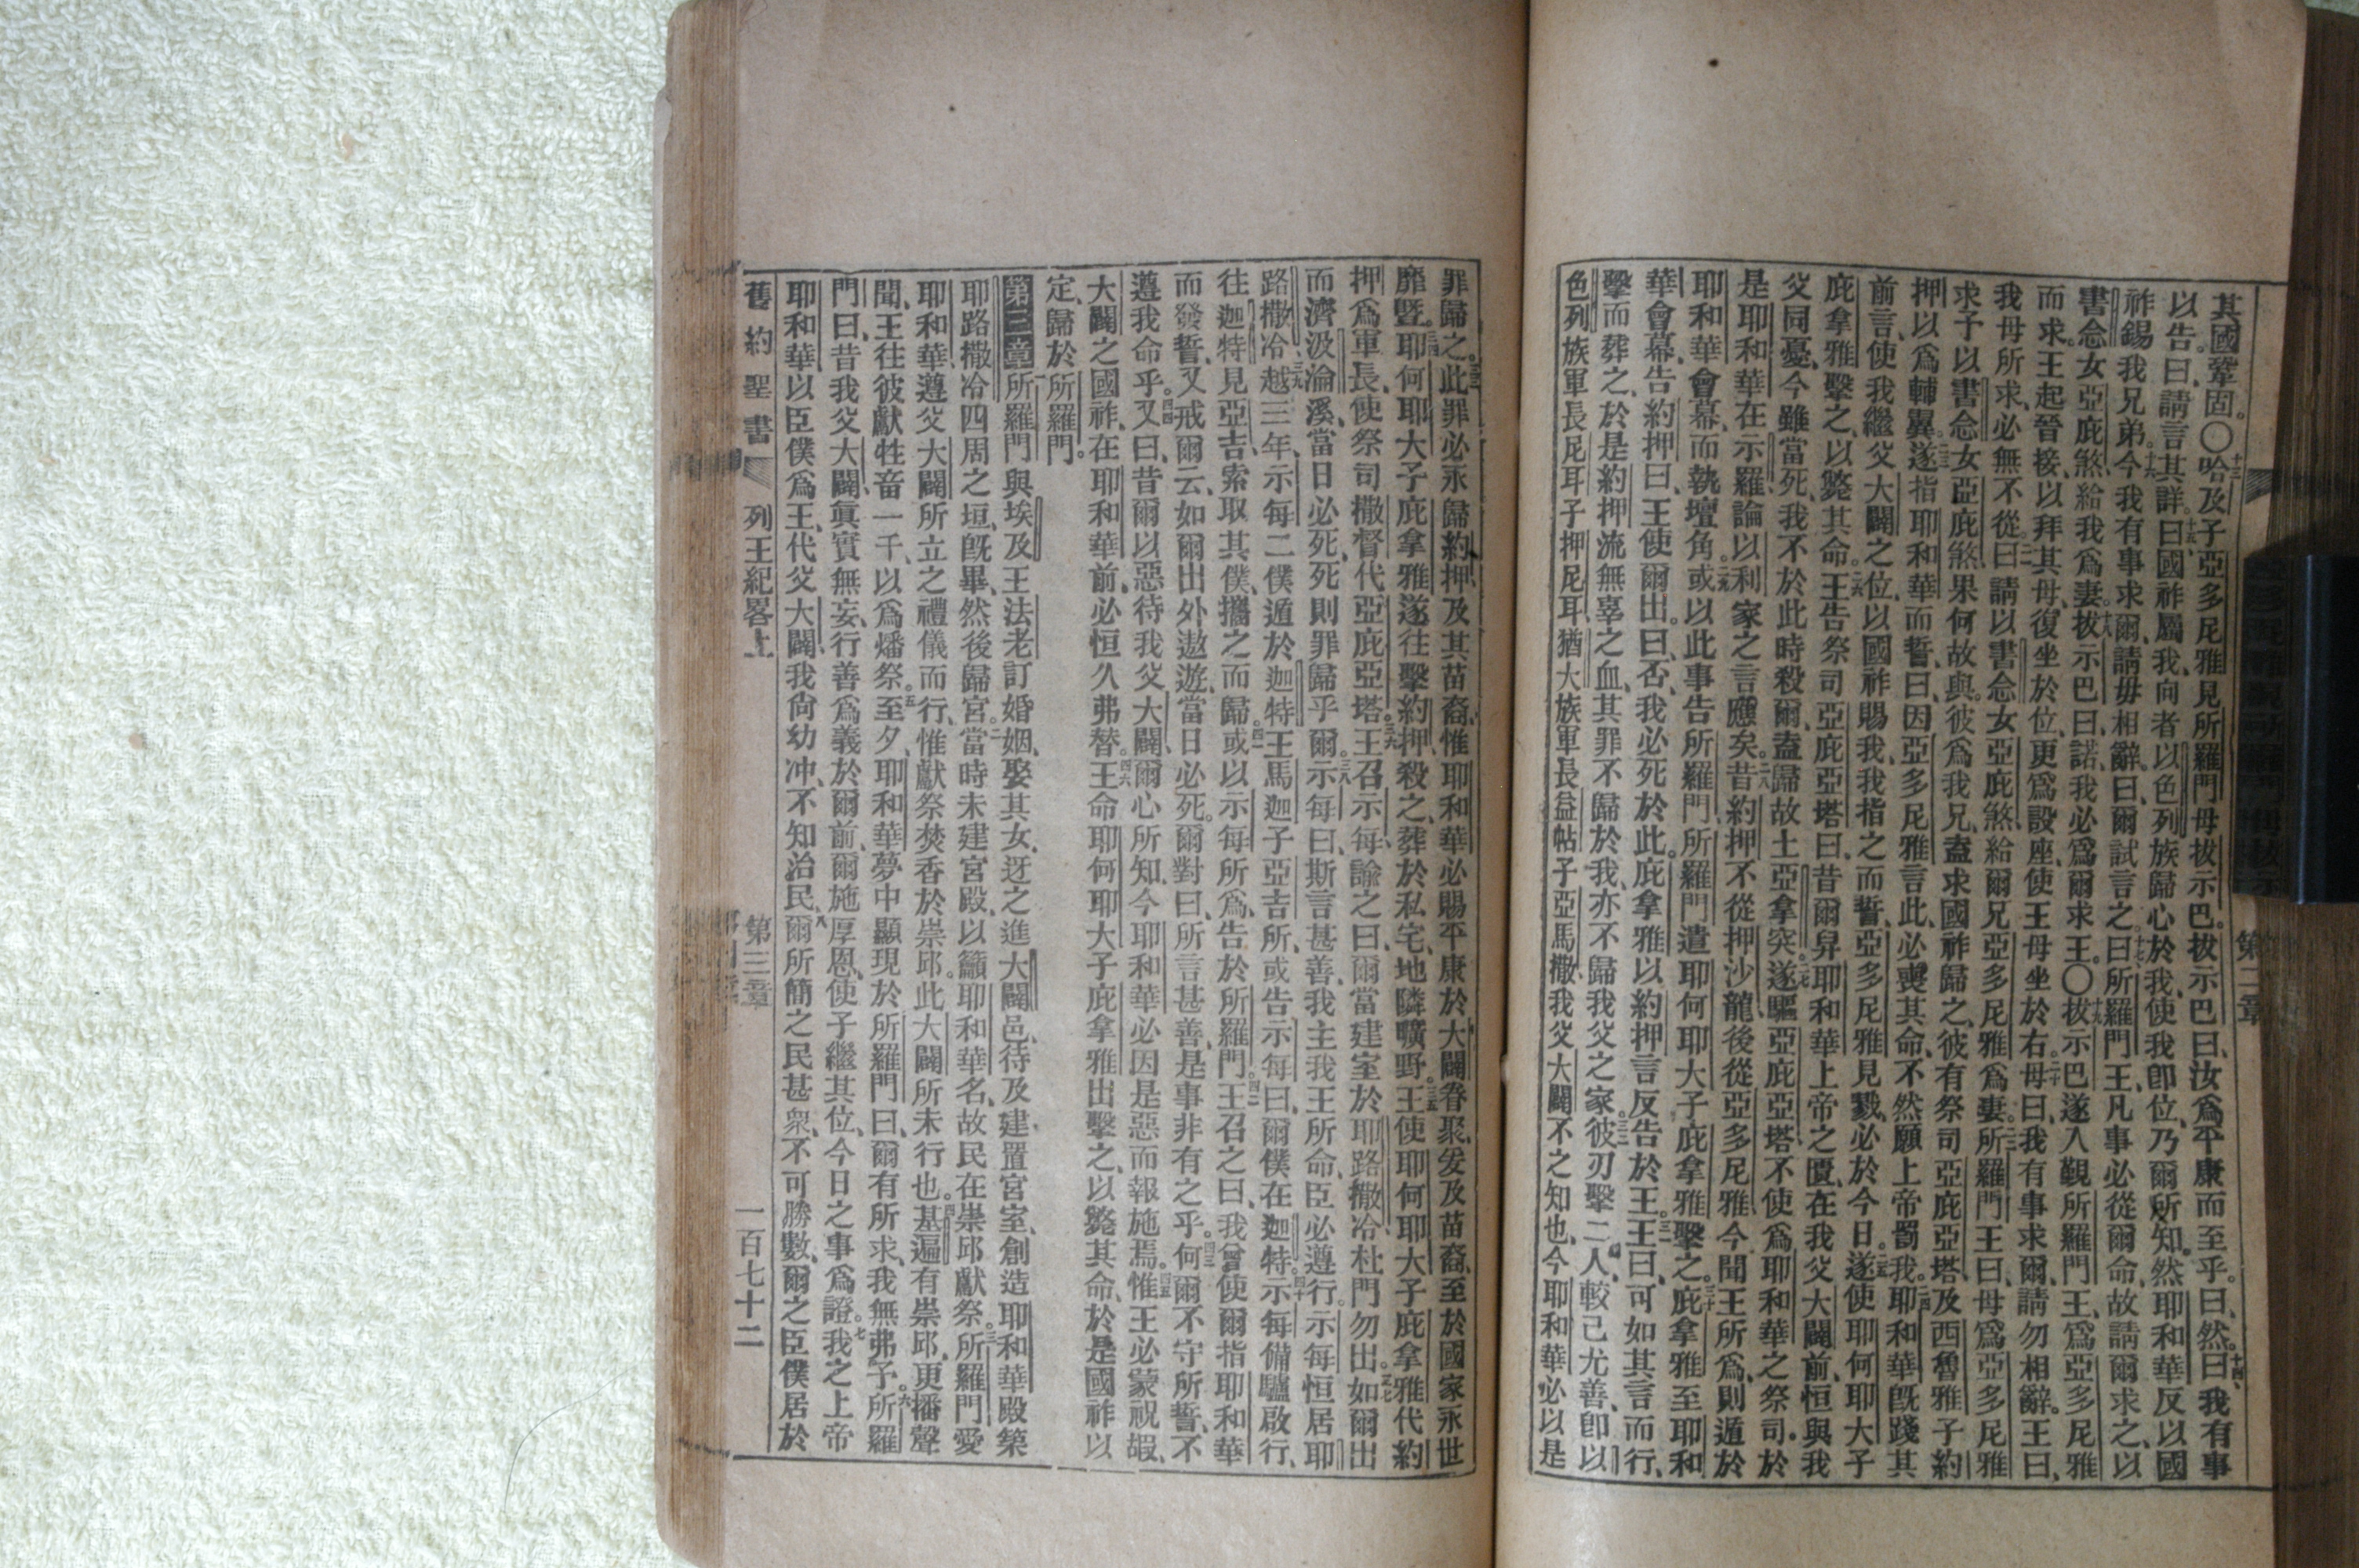 其國鞏固。〇十三哈及子亞多尼雅見所羅門母拔示巴。拔示巴曰、汝爲平康而至乎。曰、然。十四曰、我有事
以告。曰、請言其詳。十五曰、國祚屬我、向者以色列族歸心於我、使我卽位、乃爾所知。然耶和華反以國
祚錫我兄弟。十六今我有事求爾、請毋相辭。曰、爾試言之。十七曰、所羅門王、凡事必從爾命、故請爾求之、以
書念女亞庇煞、給我爲妻。十八拔示巴曰、諾、我必爲爾求王。〇十九拔示巴遂入覲所羅門王、爲亞多尼雅
而求。王起晉接、以拜其母、復坐於位、更爲設座、使王母坐於右。二十母曰、我有事求爾、請勿相辭。王曰、
我母所求、必無不從。二一曰、請以書念女亞庇煞、給爾兄亞多尼雅爲妻。二二所羅門王曰、母爲亞多尼雅
求子以書念女亞庇煞、果何故與。彼爲我兄、盍求國祚歸之、彼有祭司亞庇亞塔、及西魯雅子約
押以爲輔翼。二三遂指耶和華而誓、曰、因亞多尼雅言此、必喪其命、不然、願上帝罰我。二四耶和華旣踐其
前言、使我繼父大闢之位、以國祚賜我、我指之而誓、亞多尼雅見戮、必於今日。二五遂使耶何耶大子
庇拿雅擊之、以斃其命。二六王告祭司亞庇亞塔曰、昔爾舁耶和華上帝之匱、在我父大闢前、恒與我
父同憂、今雖當死、我不於此時殺爾、盍歸故土亞拿突。二七遂驅亞庇亞塔、不使爲耶和華之祭司、於
是耶和華在示羅、論以利家之言應矣。二八昔約押不從押沙龍、後從亞多尼雅、今聞王所爲、則遁於
耶和華會幕、而執壇角。二九或以此事告所羅門、所羅門遣耶何耶大子庇拿雅擊之。三十庇拿雅至耶和
華會幕、告約押曰、王使爾出。曰、否、我必死於此。庇拿雅以約押言反告於王。三一王曰、可如其言而行、
擊而葬之、於是約押流無辜之血、其罪不歸於我、亦不歸我父之家。三二彼刃擊二人、較己尤善、卽以
色列族軍長尼耳子押尼耳、猶大族軍長益帖子亞馬撒、我父大闢不之知也、今耶和華必以是
罪歸之。三三此罪必永歸約押及其苗裔、惟耶和華必賜平康於大闢眷聚、爰及苗裔、至於國家永世
靡曁。三四耶何耶大子庇拿雅遂往擊約押、殺之、葬於私宅、地隣曠野。三五王使耶何耶大子庇拿雅代約
押爲軍長、使祭司撒督代亞庇亞塔。三六王召示每、諭之曰、爾當建室於耶路撒冷、杜門勿出。三七如爾出
而濟汲淪溪、當日必死、死則罪歸乎爾。三八示每曰、斯言甚善、我主我王所命、臣必遵行。示每恒居耶
路撒冷。三九越三年、示每二僕遁於迦特王馬迦子亞吉所、或告示每曰、爾僕在迦特。四十示每備驢啟行、
往迦特見亞吉、索取其僕、攜之而歸。四一或以示每所爲、告於所羅門。四二王召之曰、我曾使爾指耶和華
而發誓、又戒爾云、如爾出外遨遊、當日必死。爾對曰、所言甚善、是事非有之乎。四三何爾不守所誓、不
遵我命乎。四四又曰、昔爾以惡待我父大闢、爾心所知、今耶和華必因是惡而報施焉。四五惟王必蒙祝嘏、
大闢之國祚、在耶和華前、必恒久弗替。四六王命耶何耶大子庇拿雅出擊之、以斃其命、於是國祚以
定、歸於所羅門。
第三章 一所羅門與埃及王法老訂婚姻、娶其女、迓之進大闢邑、待及建置宮室、創造耶和華殿、築
耶路撒冷四周之垣、旣畢、然後歸宮。二當時未建宮殿、以籲耶和華名、故民在崇邱獻祭。三所羅門愛
耶和華、遵父大闢所立之禮儀而行、惟獻祭焚香於崇邱。此大闢所未行也。四基遍有崇邱、更播聲
聞、王往彼獻牲畜一千、以爲燔祭。五至夕、耶和華夢中顯現於所羅門曰、爾有所求、我無弗予。六所羅
門曰、昔我父大闢、眞實無妄、行善爲義於爾前、爾施厚恩、使子繼其位、今日之事爲證。七我之上帝
耶和華、以臣僕爲王、代父大闢、我尙幼冲、不知治民、八爾所簡之民甚衆、不可勝數、爾之臣僕居於
舊約聖書 列王紀畧上 第三章 一百七十二
第二章